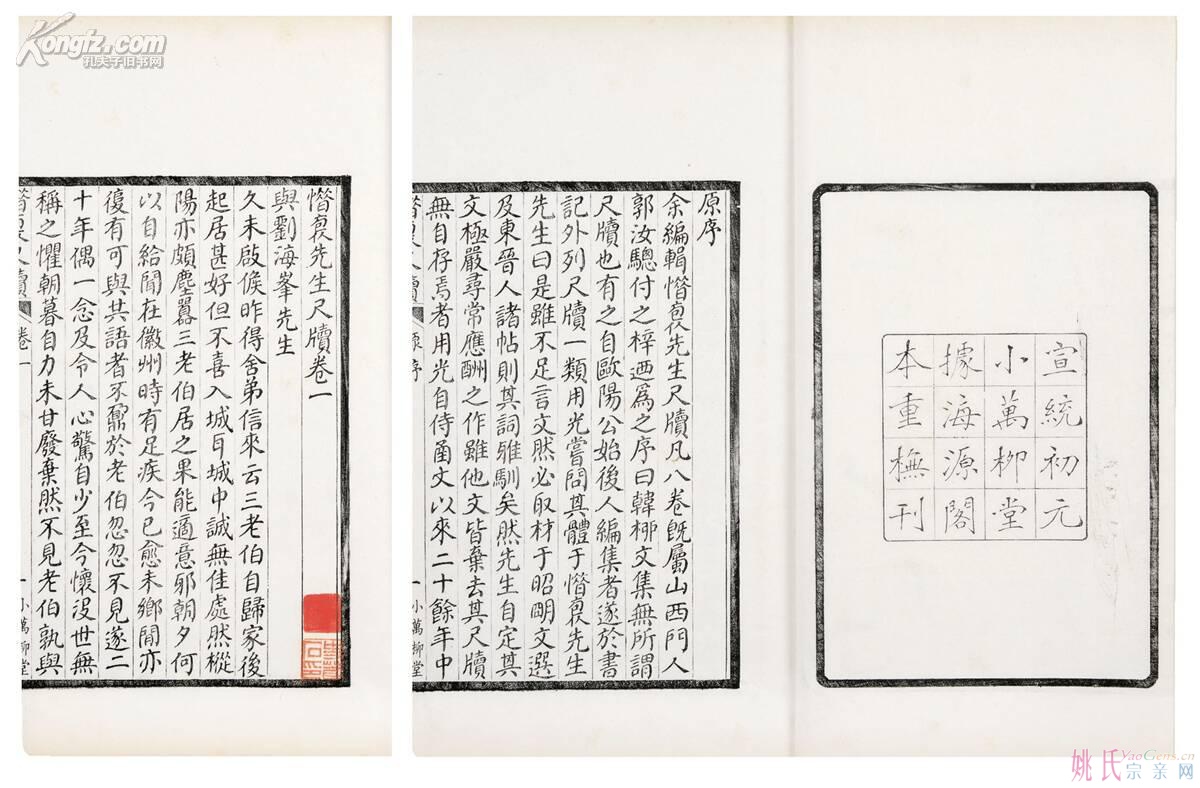 宣統初元
小萬柳堂
據海源閣
本重橅刊
原序
余編輯惜袌先生尺牘凡八卷旣屬山西門人
郭汝驄付之梓迺爲之序曰韓柳文集無所謂
尺牘也有之自歐陽公始後人編集者遂於書
記外列尺牘一類用光嘗問其體于惜袌先生
先生曰是雖不足言文然必取材于昭明文選
及東晉人諸帖則其詞雅馴矣然先生自定其
文極嚴尋常應酬之作雖他文皆棄去其尺牘
無自存焉者用光自侍函丈以來二十餘年中
原序 一 小萬柳堂
惜袌先生尺牘卷一
與劉海峯先生
久未啟候昨得舍弟信來云三老伯自歸家後
起居甚好但不喜入城耳城中誠無佳處然樅
陽亦頗塵囂三老伯居之果能適意邪朝夕何
以自給聞在徽州時有足疾今已愈未鄉閒亦
復有可與共語者不鼐於老伯忽忽不見遂二
十年偶一念及令人心驚自少至今懷沒世無
稱之懼朝暮自力未甘廢棄然不見老伯孰與
卷一 一 小萬柳堂
Kongfz.com
孔夫子旧书网
姚氏YaoGens.cn
宗亲网